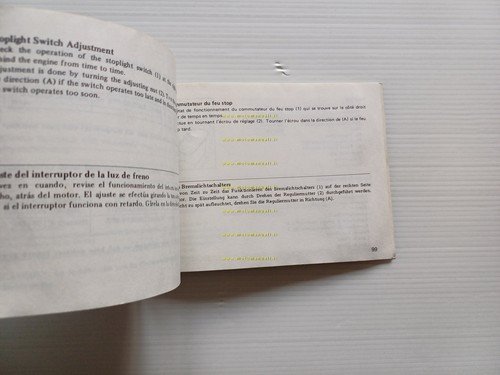 toplight Switch Adjustment
eck the operation of the stoplight switch (1) at the
hind the engine from time to time.
justment is done by turning the adjusting nut (2).
direction (A) if the switch operates too late and in
switch operates too soon.
ste del interruptor de la luz de freno
vez en cuando, revise el funcionamiento del
ho, atrás del motor. El ajuste se efectúa girando la
si el interruptor funciona con retardo. Gírela en la
nmutateur du feu stop
état de fonctionnement du commutateur du feu stop (1) qui se trouve sur le côté droit
r de temps en temps.
ctue en tournant l'écrou de réglage (2). Tourner l'écrou dans la direction de (A) si le feu
p tard.
Bremslichtschalters
von Zeit zu Zeit das Funktionieren des Bremslichtschalters (1) auf der rechten Seite
or. Die Einstellung kann durch Drehen der Reguliermutter (2) durchgeführt werden.
cht zu spät aufleuchtet, drehen Sie die Reguliermutter in Richtung (A).
99
www.motomanuali.it